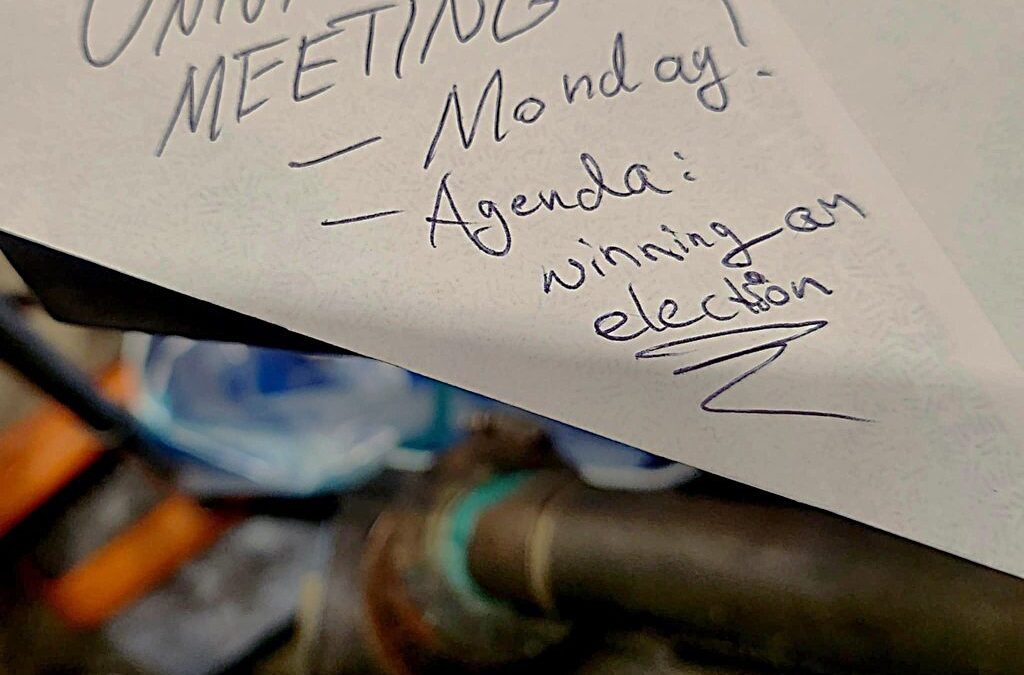 MEETING
- Monday!
- Agenda:
winning an
election